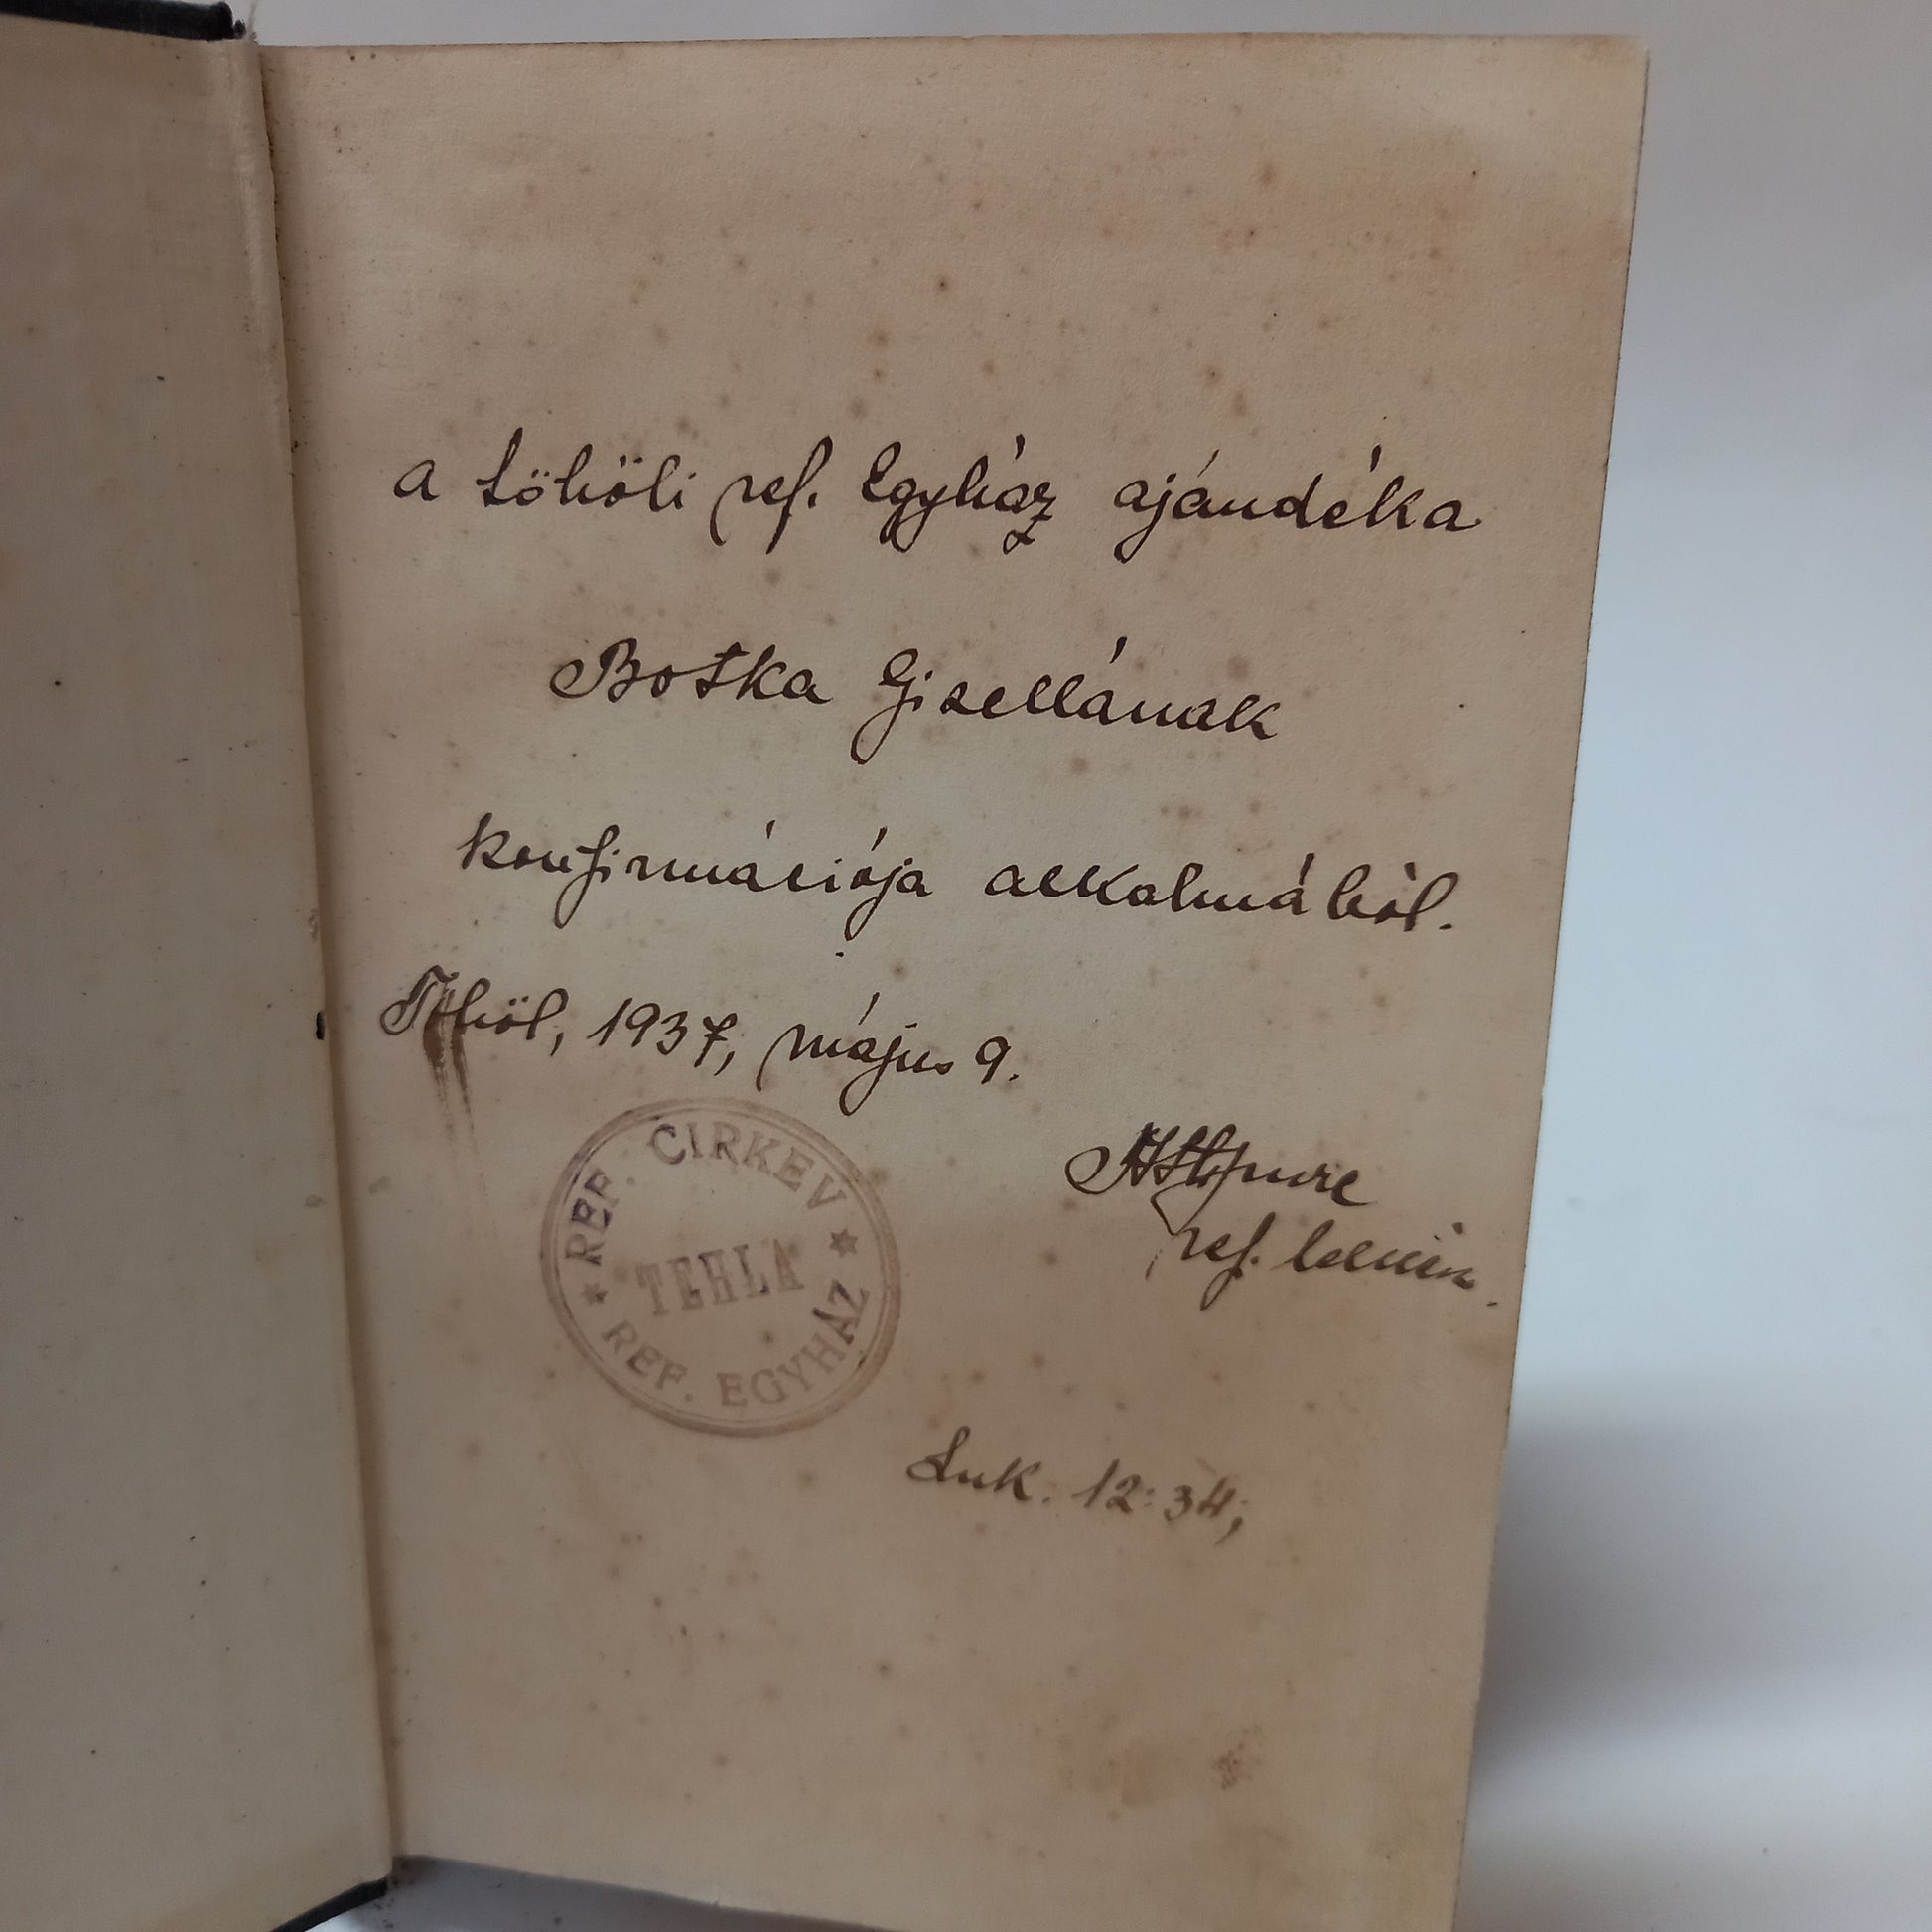 a töhöli ref. Egyház ajándéka
Botka Gisellának
konfirmációja alkalmából.
Töhöl, 1937, május 9.
ref.
REF. CIRKEV
TEHLA
REF. EGYHÁZ
Luk. 12:34;